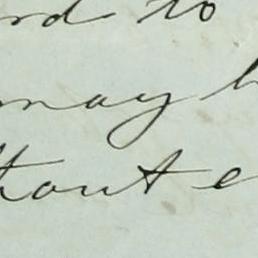 rd to
may h
thout e